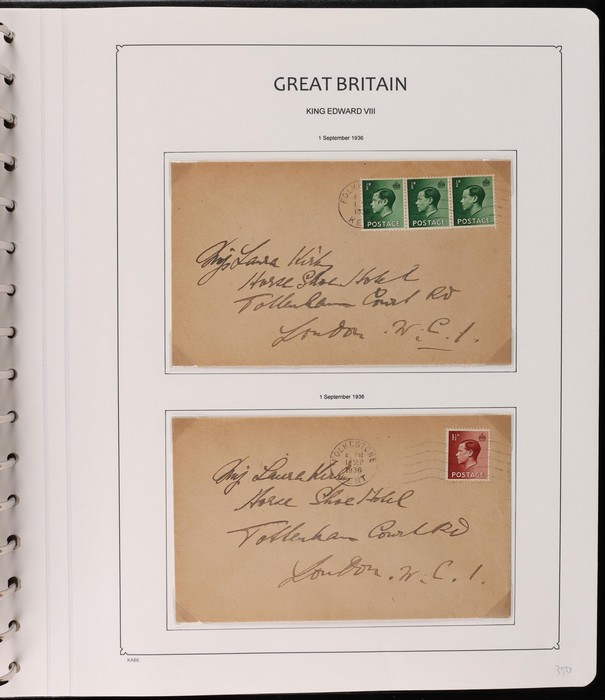 GREAT BRITAIN
KING EDWARD VIII
1 September 1936
½D ½D ½D
POSTAGE POSTAGE POSTAGE
Miss Laura Kirk
Horse Shoe Hotel
Tottenham Court Rd
London. W.C.1.
1 September 1936
FOLKESTONE
1 SEP
1936
KENT
1½D
POSTAGE
Miss Laura Kirk
Horse Shoe Hotel
Tottenham Court Rd
London. W.C.1.
KABE
350